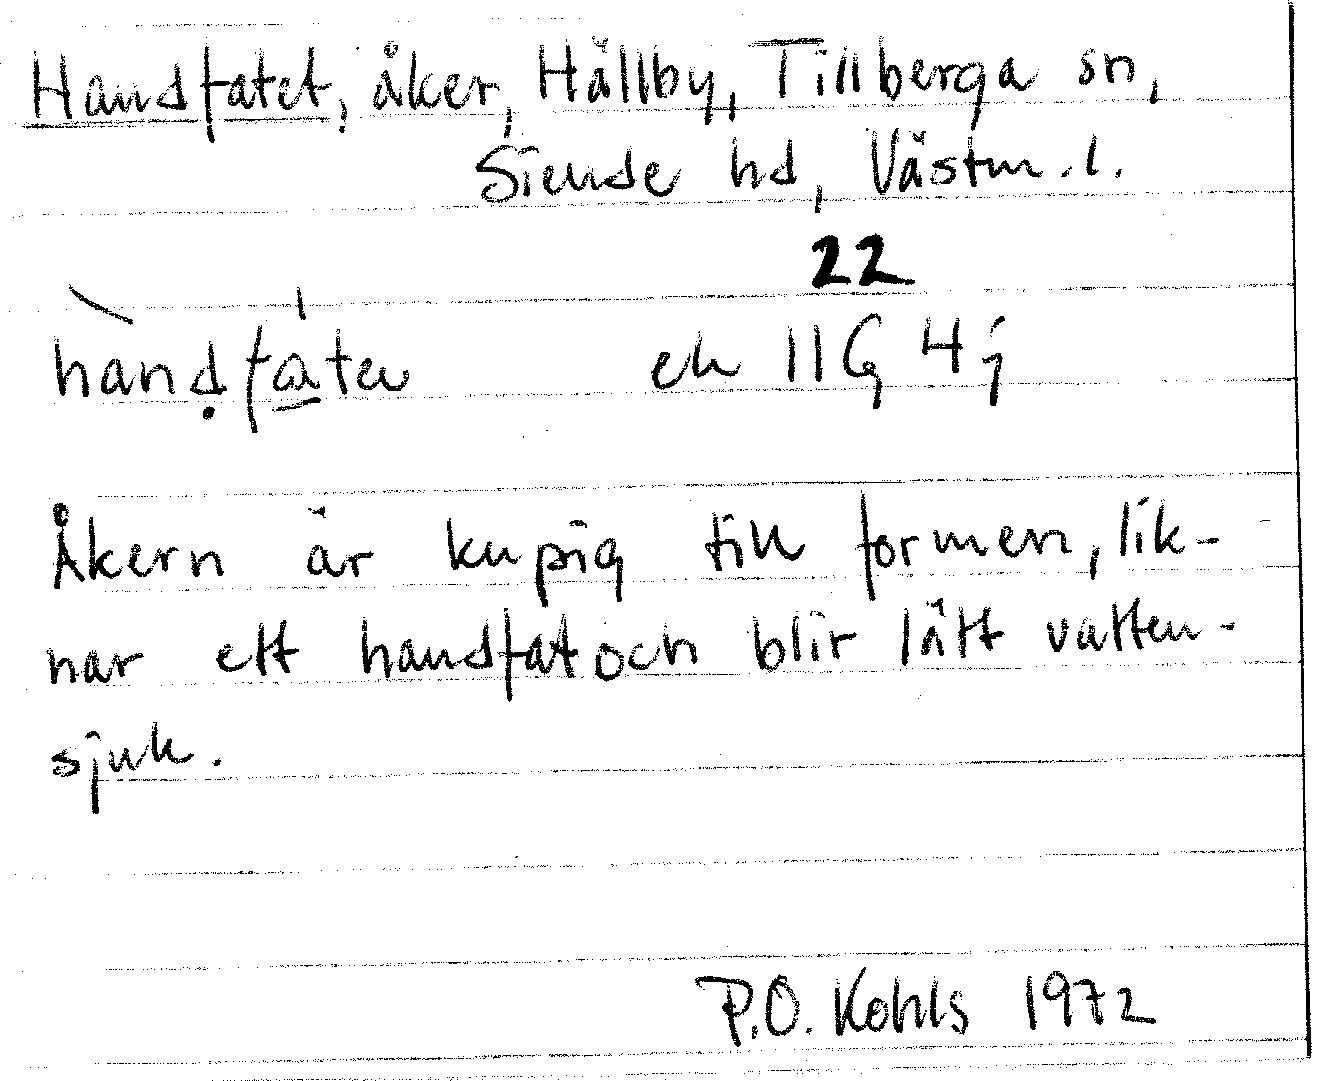 Handfatet, åker, Hällby, Tillberga sn,
Siende hd, Västm.l.
22
hàndfáteu ek 11G 4j
Åkern är kupig till formen, lik-
nar ett handfat och blir lätt vatten-
sjuk.
P.O. Kohls 1972